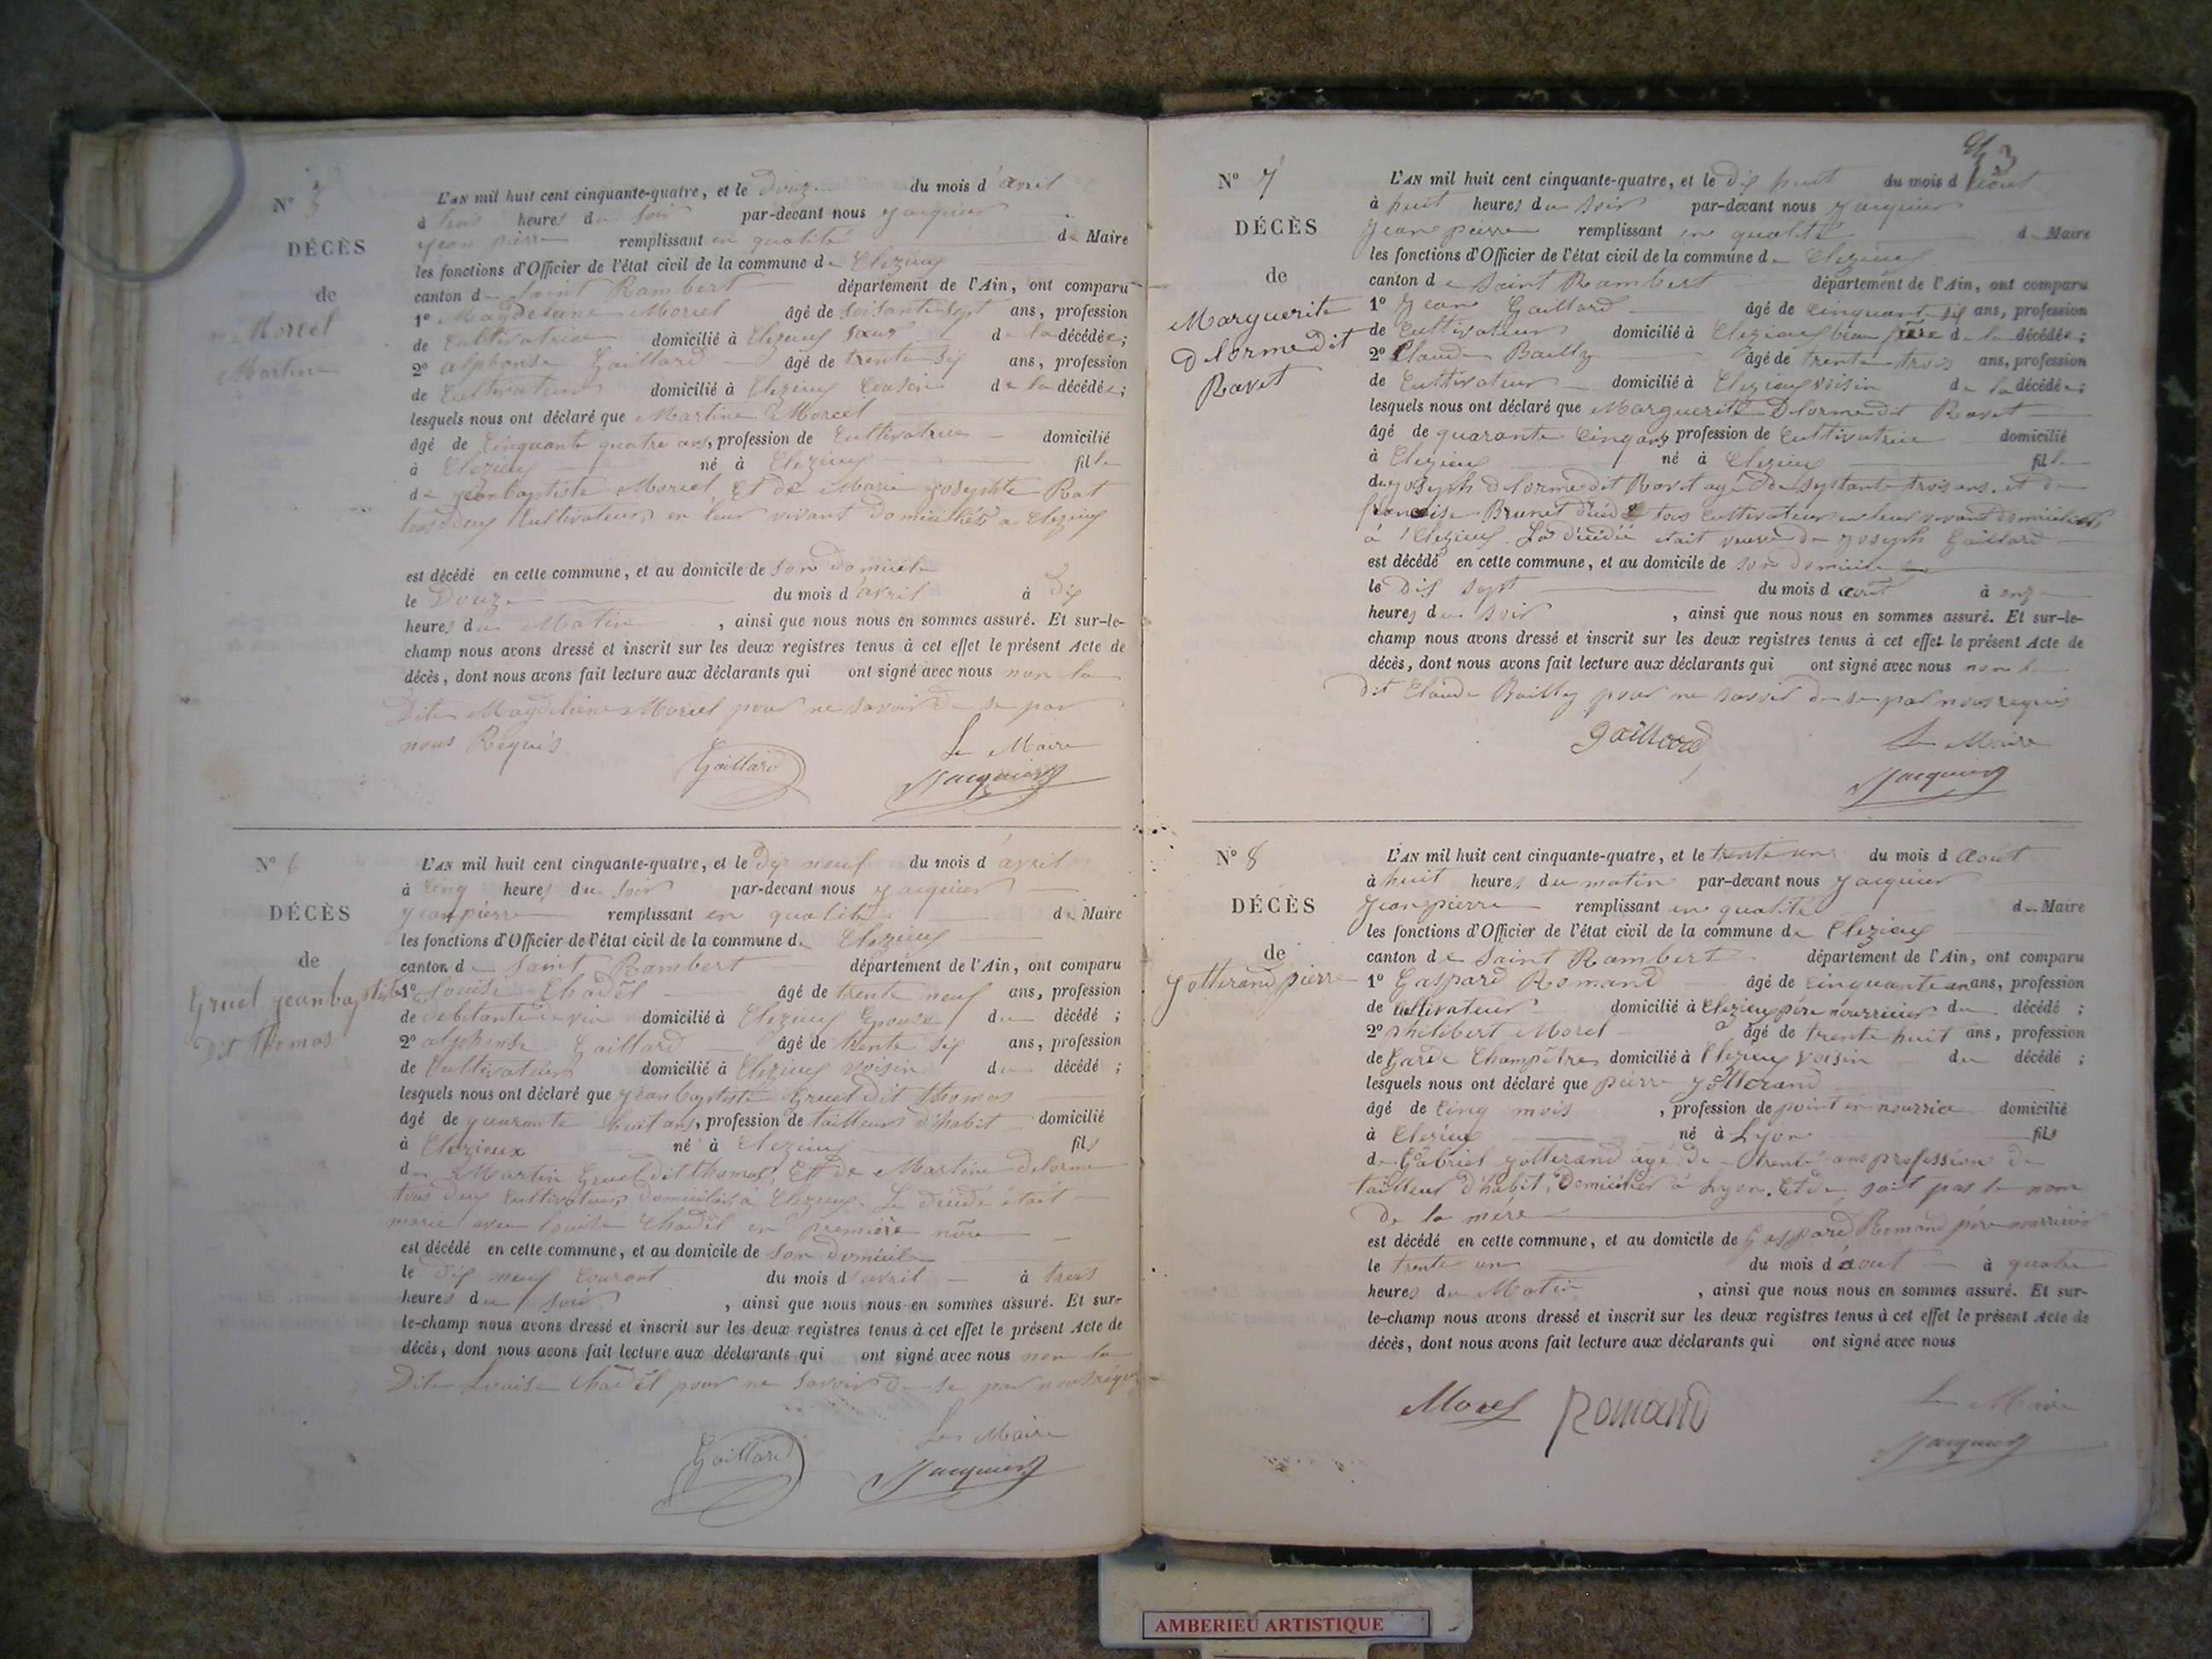 N° 5
DÉCÈS
de
Morel
Martine
L'AN mil huit cent cinquante-quatre, et le Douze du mois d'avril
à trois heures du soir par-devant nous Jacquier
Jean pierre remplissant en qualité de Maire
les fonctions d'Officier de l'état civil de la commune de Clezieu
canton de Saint Rambert département de l'Ain, ont comparu
1° Magdeleine Morel âgé de soisante sept ans, profession
de Cultivatrice domicilié à Clezieu sœur de la décédée;
2° alphonse Gaillard âgé de trente six ans, profession
de Cultivateur domicilié à Clezieu Cousin de la décédée;
lesquels nous ont déclaré que Martine Morel
âgé de Cinquante quatre ans, profession de Cultivatrice domicilié
à Clezieu né à Clezieu fille
de jean baptiste Morel et de Marie josephte Rat
tous deux Cultivateurs en leur vivant Domiciliés a Clezieu
est décédé en cette commune, et au domicile de son Domicile
le Douze du mois d'avril à Dix
heures du Matin, ainsi que nous nous en sommes assuré. Et sur-le-
champ nous avons dressé et inscrit sur les deux registres tenus à cet effet le présent Acte de
décès, dont nous avons fait lecture aux déclarants qui ont signé avec nous non la
Dite Magdeleine Morel pour ne savoir de se par
nous Requis
Gaillard
Le Maire
Jacquier
N° 6
DÉCÈS
de
Gruel jean baptiste
Dit Thomas
L'AN mil huit cent cinquante-quatre, et le Dix neuf du mois d'avril
à Cinq heures du soir par-devant nous Jacquier
Jean pierre remplissant en qualité de Maire
les fonctions d'Officier de l'état civil de la commune de Clezieu
canton de Saint Rambert département de l'Ain, ont comparu
1° Louise Chadel âgé de trente neuf ans, profession
de debitante de vin domicilié à Clezieu Epouse du décédé;
2° alphonse Gaillard âgé de trente six ans, profession
de Cultivateur domicilié à Clezieu voisin du décédé;
lesquels nous ont déclaré que jean baptiste Gruel Dit Thomas
âgé de quarante huit ans, profession de tailleur d'habit domicilié
à Clezieux né à Clezieu fils
de Martin Gruel dit thomas, Et de Martine Delorme
tous deux Cultivateurs Domiciliés à Clezieu. Le Décédé était
marié avec Louise Chadel en première
est décédé en cette commune, et au domicile de son Domicile
le Dix neuf Courant du mois d'avril à trois
heures du soir, ainsi que nous nous en sommes assuré. Et sur-
le-champ nous avons dressé et inscrit sur les deux registres tenus à cet effet le présent Acte de
décès, dont nous avons fait lecture aux déclarants qui ont signé avec nous non la
Dite Louise Chadel pour ne savoir de se par nous réquis
Gaillard
Le Maire
Jacquier
3
N° 7
DÉCÈS
de
Marguerite
Delorme dit
Ravet
L'AN mil huit cent cinquante-quatre, et le Dix huit du mois d'Août
à huit heures du soir par-devant nous Jacquier
Jean pierre remplissant en qualité de Maire
les fonctions d'Officier de l'état civil de la commune de Clezieu
canton de Saint Rambert département de l'Ain, ont comparu
1° Jean Gaillard âgé de Cinquante six ans, profession
de Cultivateur domicilié à Clezieu beau frère de la décédée;
2° Claude Bailly âgé de trente trois ans, profession
de Cultivateur domicilié à Clezieu voisin de la décédée;
lesquels nous ont déclaré que Marguerite Delorme dit Ravet
âgé de quarante Cinq ans profession de Cultivatrice domicilié
à Clezieu né à Clezieu fille
de joseph delorme dit Ravet agé de septante trois ans, et de
françoise Brunet tous Cultivateurs en leur vivant domiciliés
à Clezieu. La décédée etait veuve de joseph Gaillard
est décédé en cette commune, et au domicile de son domicile
le Dix sept du mois d'août à onze
heures du soir, ainsi que nous nous en sommes assuré. Et sur-le-
champ nous avons dressé et inscrit sur les deux registres tenus à cet effet le présent Acte de
décès, dont nous avons fait lecture aux déclarants qui ont signé avec nous non le
dit Claude Bailly pour ne savoir de se par nous requis
gaillard
Le Maire
Jacquier
N° 8
DÉCÈS
de
Jotterand pierre
L'AN mil huit cent cinquante-quatre, et le trente un du mois d'Août
à huit heures du matin par-devant nous Jacquier
Jean pierre remplissant en qualité de Maire
les fonctions d'Officier de l'état civil de la commune de Clezieu
canton de Saint Rambert département de l'Ain, ont comparu
1° Gaspard Romand âgé de Cinquante un ans, profession
de Cultivateur domicilié à Clezieu père nourricier du décédé;
2° philibert Morel âgé de trente huit ans, profession
de Garde Champêtre domicilié à Clezieu voisin du décédé;
lesquels nous ont déclaré que pierre Jotterand
âgé de Cinq mois, profession de point en nourrice domicilié
à Clezieu né à Lyon fils
de Gabriel Jotterand agé de trente ans profession de
tailleur d'habit, Domicilié à Lyon. Et de sait pas le nom
De la mère
est décédé en cette commune, et au domicile de Gaspard Romand père nourricier
le trente un du mois d'août à quatre
heures du Matin, ainsi que nous nous en sommes assuré. Et sur-
le-champ nous avons dressé et inscrit sur les deux registres tenus à cet effet le présent Acte de
décès, dont nous avons fait lecture aux déclarants qui ont signé avec nous
Morel Romand
Le Maire
Jacquier
AMBERIEU ARTISTIQUE